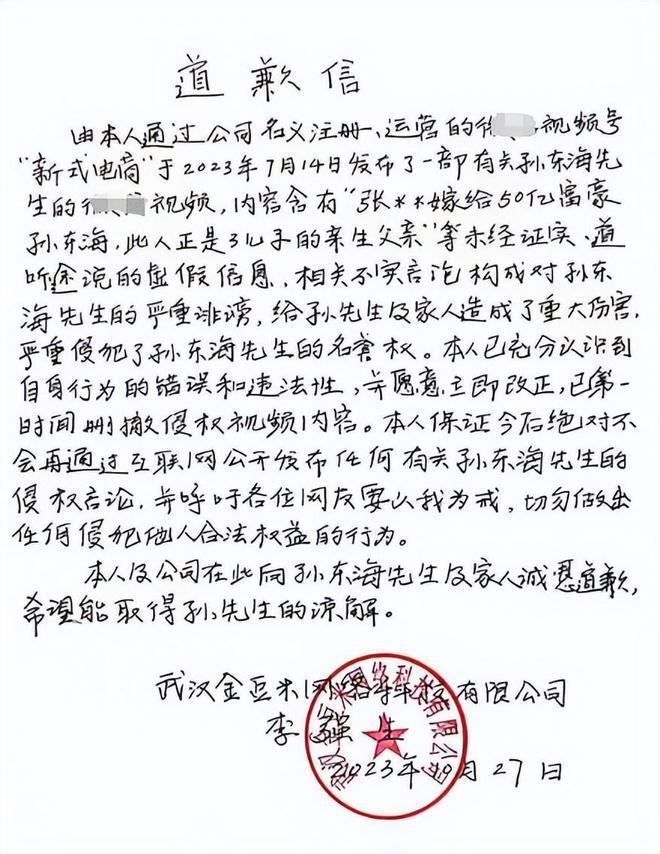 道歉信
由本人通过公司名义注册、运营的微视频号
"新式电商"于2023年7月14日发布了一部有关孙东海先
生的视频，内容含有"张**嫁给50亿富豪
孙东海，此人正是3儿子的亲生父亲"等未经证实、道
听途说的虚假信息，相关不实言论构成对孙东
海先生的严重诽谤，给孙先生及家人造成了重大伤害，
严重侵犯了孙东海先生的名誉权。本人已充分认识到
自身行为的错误和违法性，并愿意立即改正，已第一
时间删撤侵权视频内容。本人保证今后绝对不
会再通过互联网公开发布任何有关孙东海先生的
侵权言论，并呼吁各位网友要以我为戒，切勿做出
任何侵犯他人合法权益的行为。
本人及公司在此向孙东海先生及家人诚恳道歉，
希望能取得孙先生的谅解。
武汉金豆米网络科技有限公司
李强生
2023年10月27日